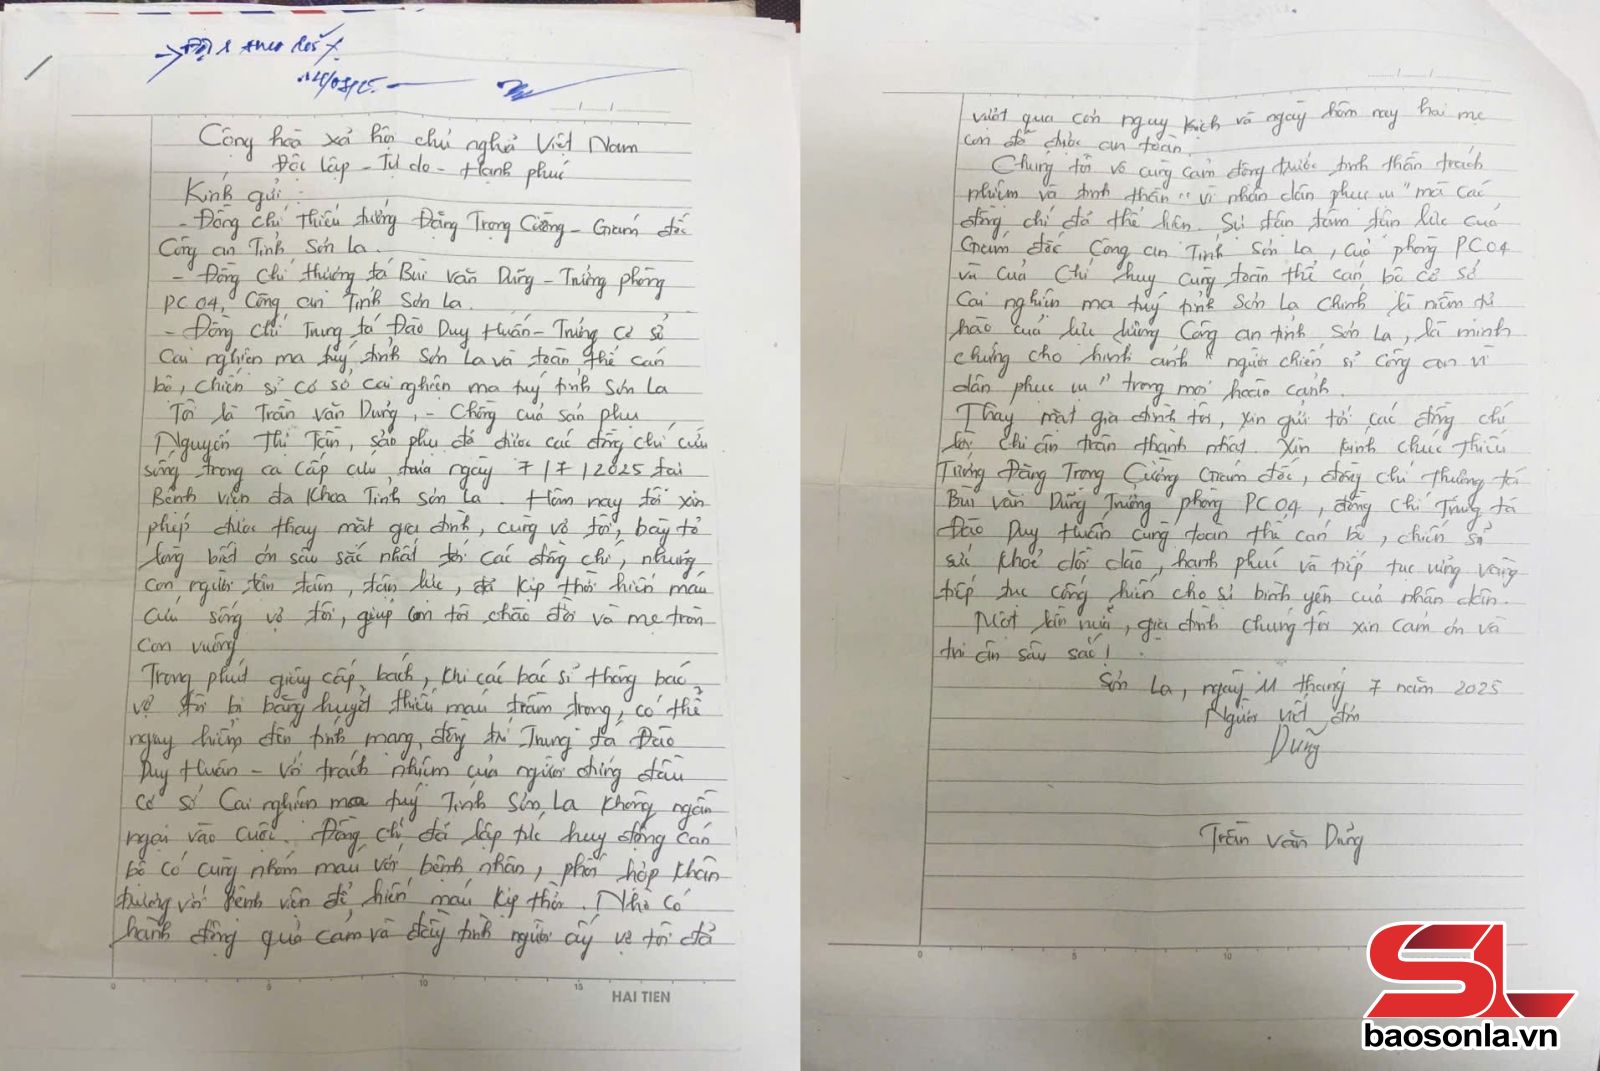 14/08/25
Cộng hoà xã hội chủ nghĩa Việt Nam
Độc lập - Tự do - Hạnh phúc
Kính gửi :
- Đồng chí Thiếu tướng Đặng Trọng Cường - Giám đốc
Công an Tỉnh Sơn La.
- Đồng chí thượng tá Bùi Văn Dũng - Trưởng phòng
PC04, Công an Tỉnh Sơn La.
- Đồng chí Trung tá Đào Duy Huấn - Trưởng cơ sở
Cai nghiện ma tuý tỉnh Sơn La và toàn thể cán
bộ, chiến sĩ cơ sở cai nghiện ma tuý tỉnh Sơn La
Tôi là Trần Văn Dũng, - Chồng của sản phụ
Nguyễn Thị Tần, sản phụ đã được các đồng chí cứu
sống trong ca cấp cứu đưa ngày 7/7/2025 tại
Bệnh viện đa khoa Tỉnh Sơn La. Hôm nay tôi xin
phép được thay mặt gia đình, cùng vợ tôi, bày tỏ
lòng biết ơn sâu sắc nhất tới các đồng chí, những
con người tận tâm, tận lực, đã kịp thời hiến máu
cứu sống vợ tôi, giúp con tôi chào đời và mẹ tròn
con vuông
Trong phút giây cấp bách, khi các bác sĩ thông báo
vợ tôi bị băng huyết thiếu máu trầm trọng, có thể
nguy hiểm đến tính mạng, đồng chí Trung tá Đào
Duy Huấn - Với trách nhiệm của người đứng đầu
cơ sở Cai nghiện ma tuý Tỉnh Sơn La không ngần
ngại vào cuộc. Đồng chí đã lập tức huy động cán
bộ có cùng nhóm máu với bệnh nhân, phối hợp khẩn
trương với bệnh viện để hiến máu kịp thời. Nhờ có
hành động quả cảm và đầy tình người ấy vợ tôi đã
HAI TIEN
vượt qua cơn nguy kịch và ngày hôm nay hai mẹ
con đã được an toàn.
Chúng tôi vô cùng cảm động trước tinh thần trách
nhiệm và tinh thần "vì nhân dân phục vụ" mà các
đồng chí đã thể hiện. Sự tận tâm tận lực của
Giám đốc Công an Tỉnh Sơn La, của phòng PC04
và của Chỉ huy cùng toàn thể cán bộ cơ sở
Cai nghiện ma tuý tỉnh Sơn La chính là niềm tự
hào của lực lượng Công an tỉnh Sơn La, là minh
chứng cho hình ảnh "người chiến sĩ Công an vì
dân phục vụ" trong mọi hoàn cảnh.
Thay mặt gia đình tôi, xin gửi tới các đồng chí
lời chi ân trân thành nhất. Xin kính chúc Thiếu
Tướng Đặng Trọng Cường Giám đốc, đồng chí Thượng tá
Bùi Văn Dũng Trưởng phòng PC04, đồng chí Trung tá
Đào Duy Huấn cùng toàn thể cán bộ, chiến sĩ
sức khoẻ dồi dào, hạnh phúc và tiếp tục vững vàng
tiếp tục cống hiến cho sự bình yên của nhân dân.
Một lần nữa, gia đình chúng tôi xin cảm ơn và
tri ân sâu sắc!
Sơn La, ngày 11 tháng 7 năm 2025
Người viết đơn
Dũng
Trần Văn Dũng
SL
baosonla.vn